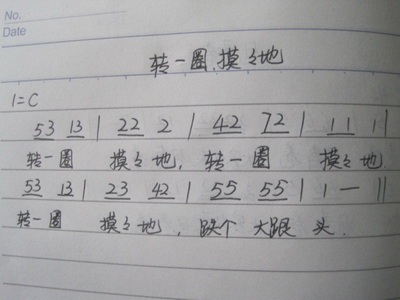 No.
Date
转一圈,摸々地
1=C
53 13 | 22 2 | 42 72 | 11 1 |
转一圈 摸々地, 转一圈 摸々地
53 13 | 23 42 | 55 55 | 1 — ||
转一圈 摸々地, 跌个 大跟 头.